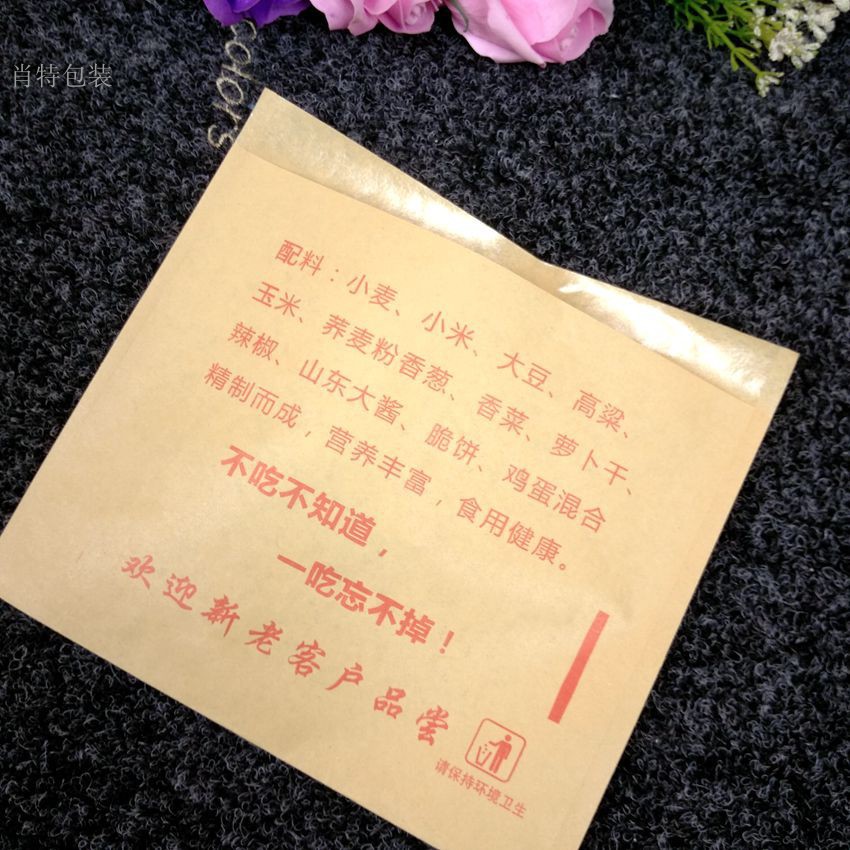 肖特包装
colors
配料：小麦、小米、大豆、高粱、
玉米、荞麦粉香葱、香菜、萝卜干、
辣椒、山东大酱、脆饼、鸡蛋混合
精制而成，营养丰富，食用健康。
不吃不知道，
一吃忘不掉！
欢迎新老客户品尝
请保持环境卫生